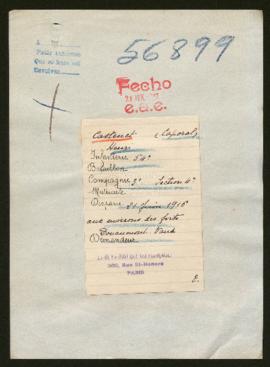 56899
Fecho
e.a.e.
Castenet (Caporal)
Henri
Infanterie 54e
Bataillon
Compagnie 3e Section 4e
Matricule
Disparu 21 Juin 1916
aux environs des forts
Douaumont Vaux
Demandeur
PARIS